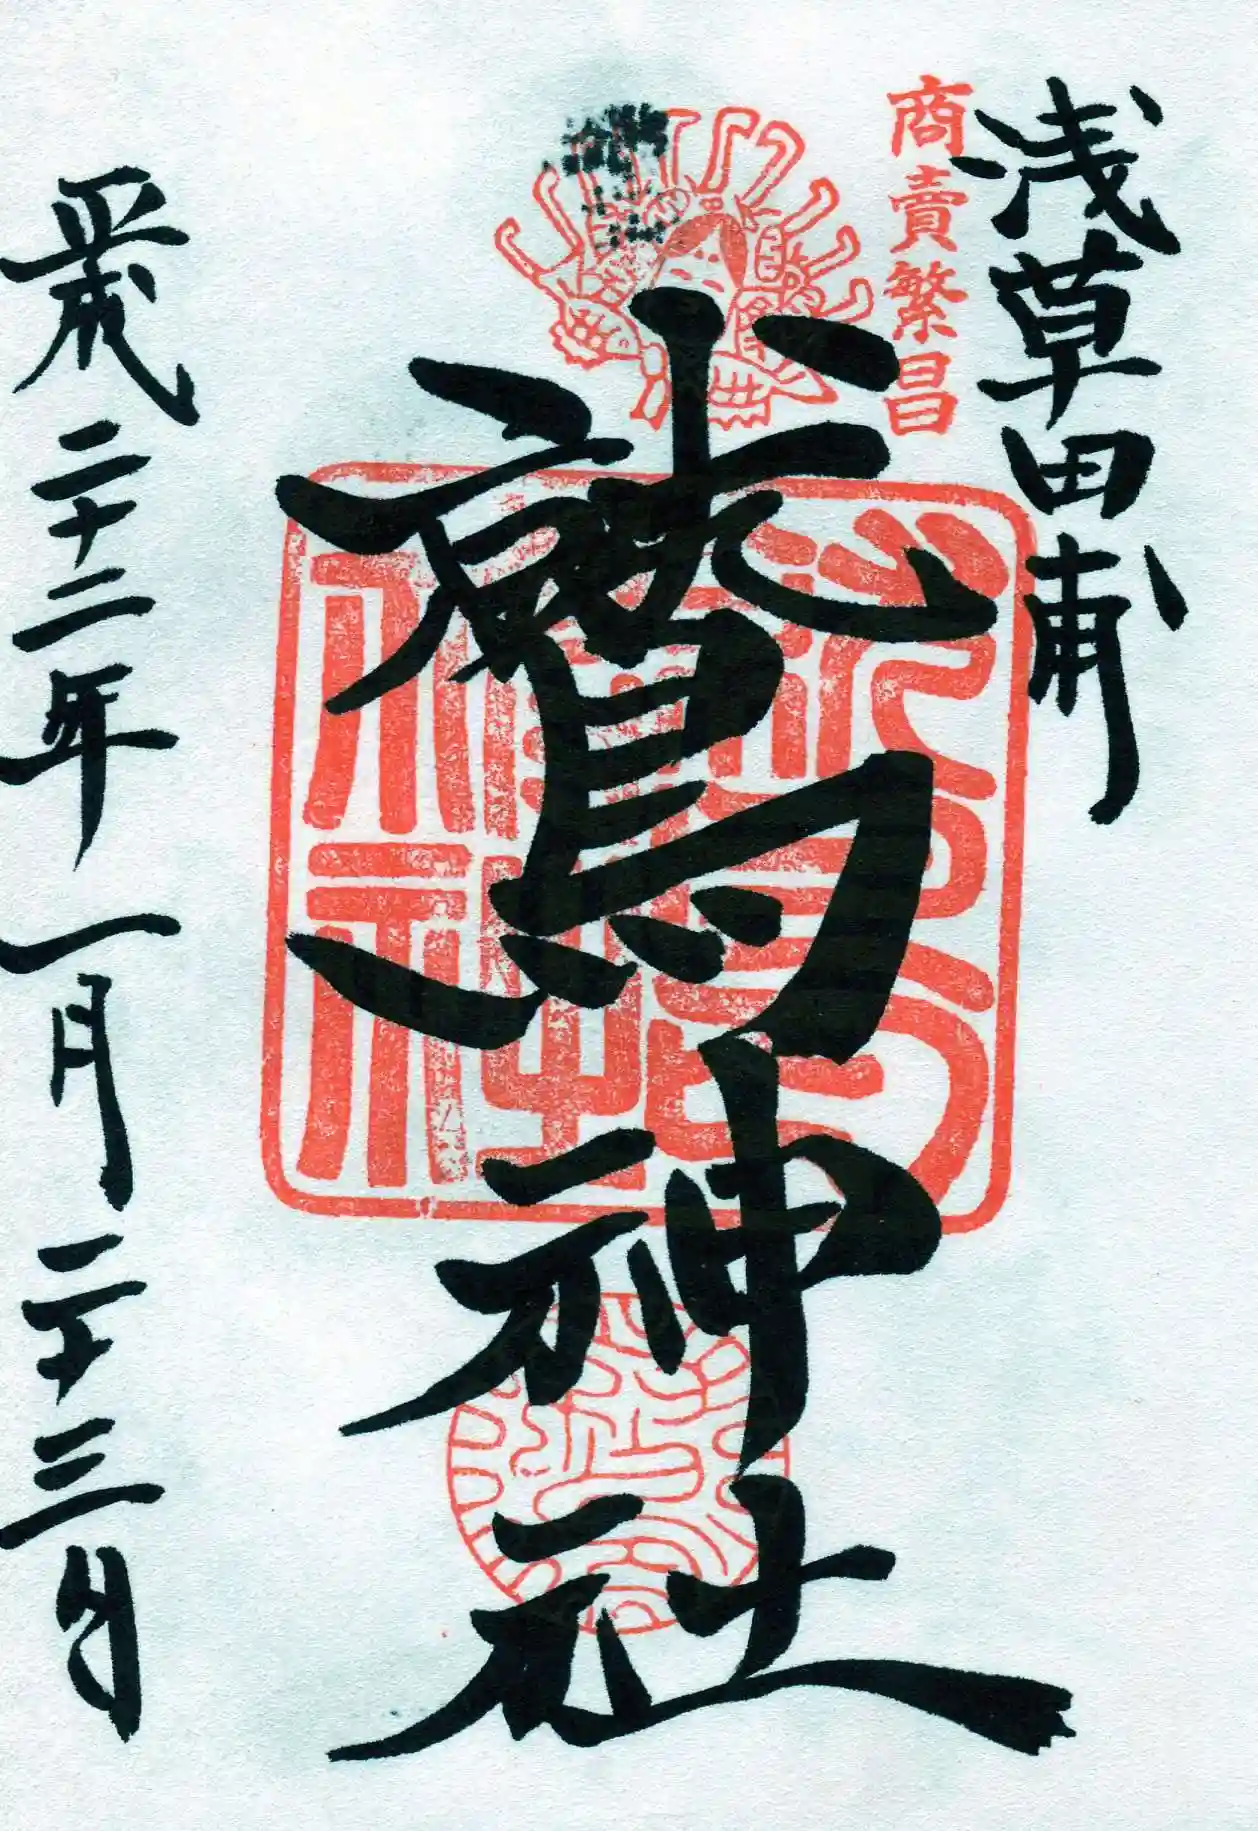 浅草田甫
商賣繁昌
鷲神社
平成二十二年一月二十三日